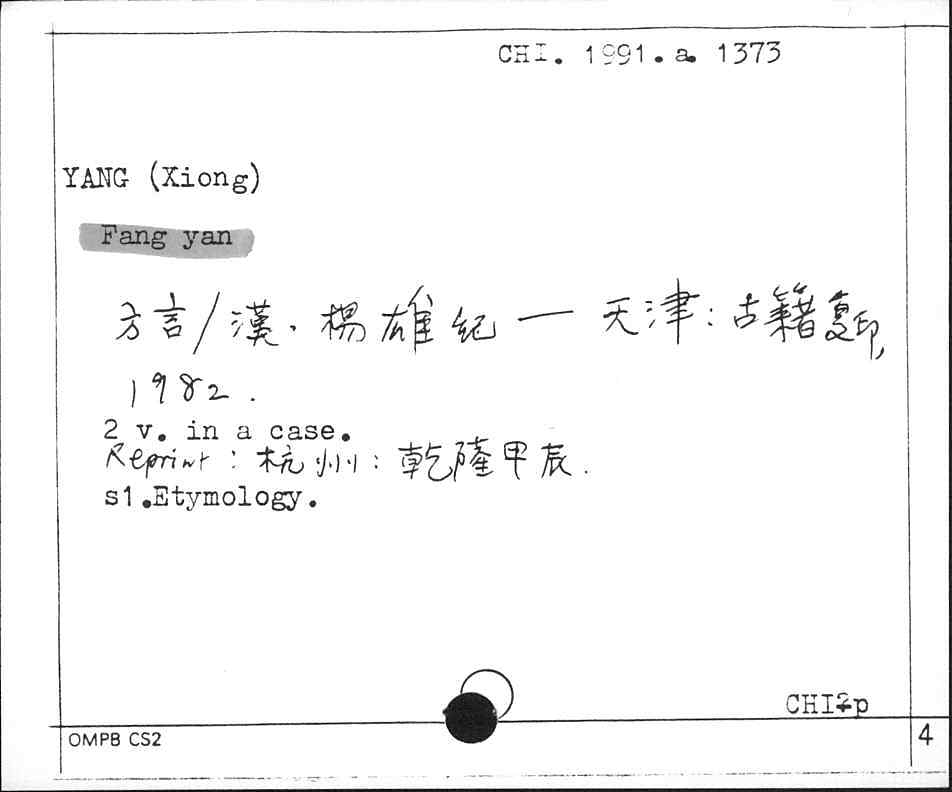 CHI. 1991.a. 1373
YANG (Xiong)
Fang yan
方言/漢·楊雄紀 — 天津:古籍复印,
1982.
2 v. in a case.
Reprint: 杭州: 乾隆甲辰.
s1.Etymology.
CHI p
OMPB CS2
4